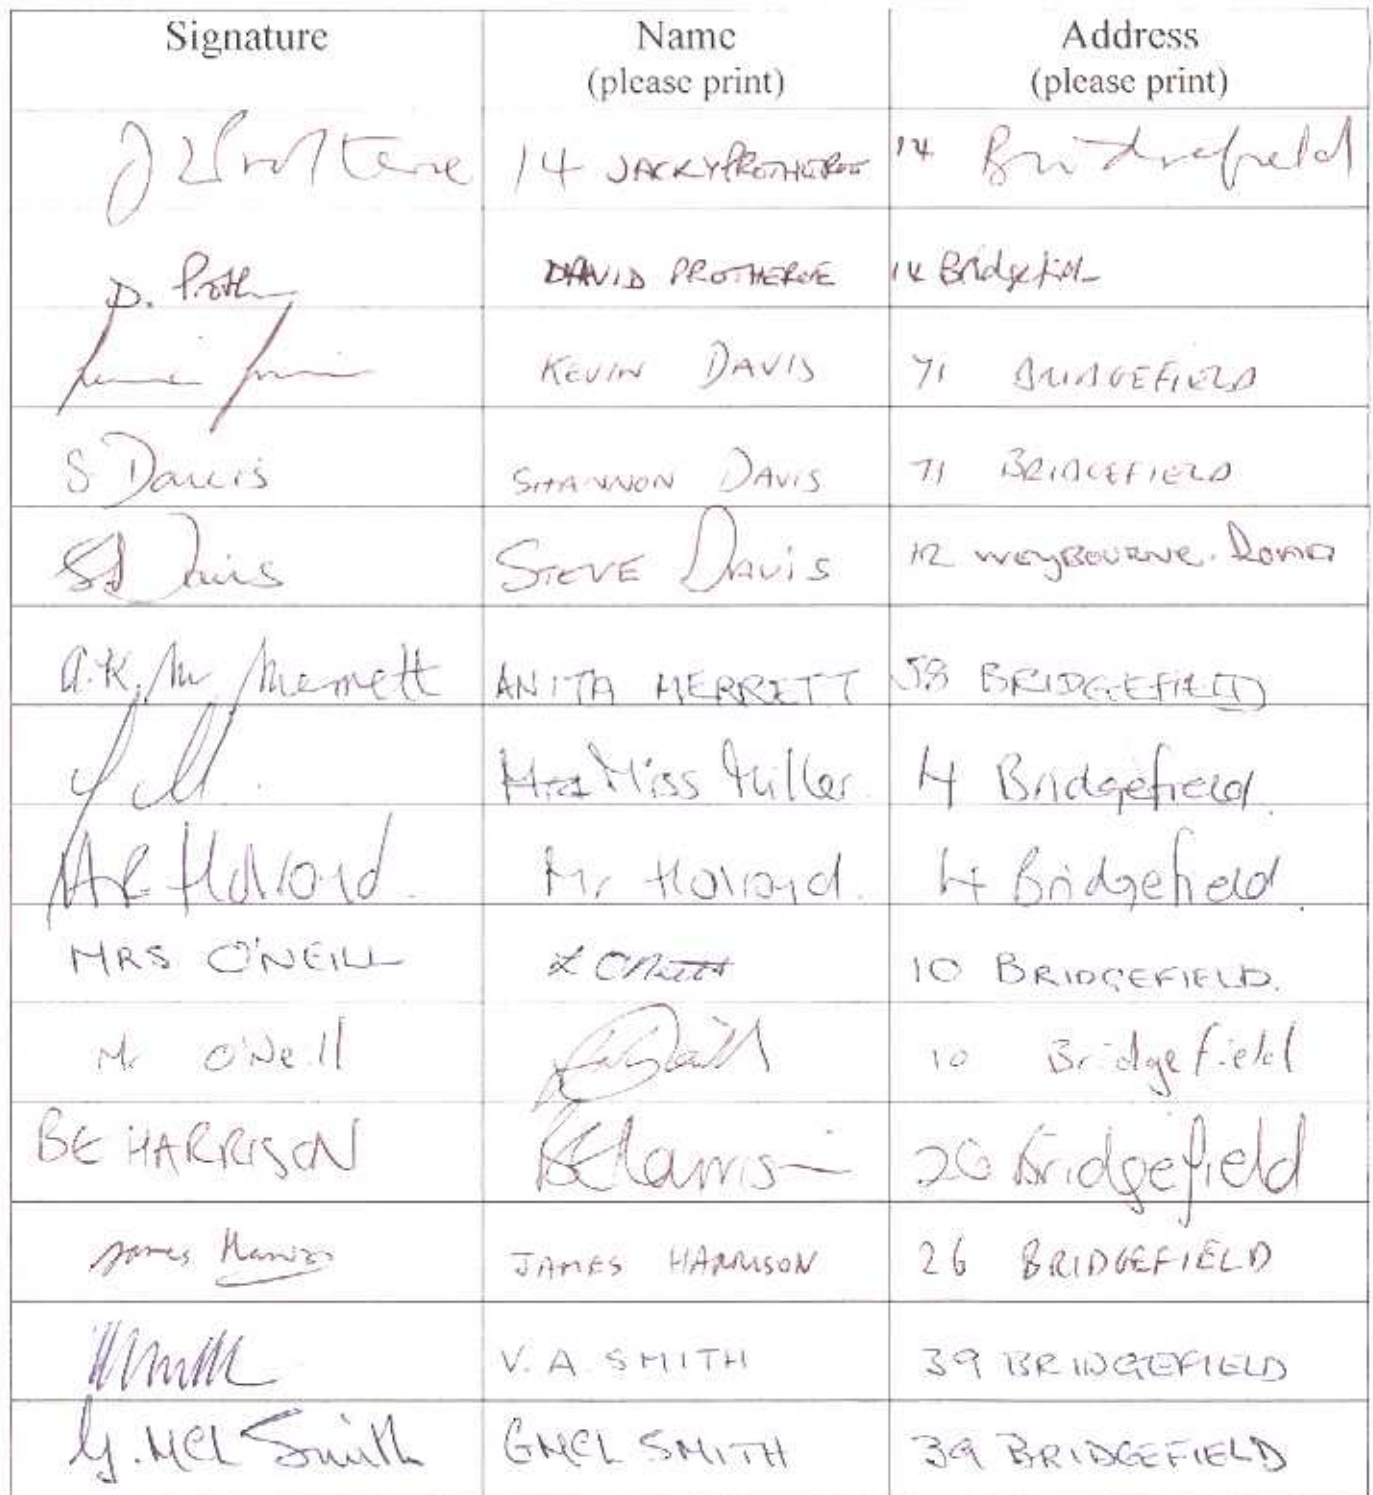 Signature Name Address
(please print) (please print)
14 JACKY PROTHEROE 14 Bridgefield
D. Proth DAVID PROTHEROE 14 Bridgefield
KEVIN DAVIS 71 BRIDGEFIELD
S Davis SHANNON DAVIS 71 BRIDGEFIELD
S Davis STEVE DAVIS 12 WEYBOURNE ROAD
A.K. M Merrett ANITA MERRETT 58 BRIDGEFIELD
Miss Miller 4 Bridgefield.
Holroyd. Mr Holroyd. 4 Bridgefield.
MRS O'NEILL 10 BRIDGEFIELD.
Mr O'Neill 10 Bridgefield
BE HARRISON BE Harrison 26 Bridgefield
James Harrison JAMES HARRISON 26 BRIDGEFIELD
V. A. SMITH 39 BRIDGEFIELD
G. McL Smith GMCL SMITH 39 BRIDGEFIELD